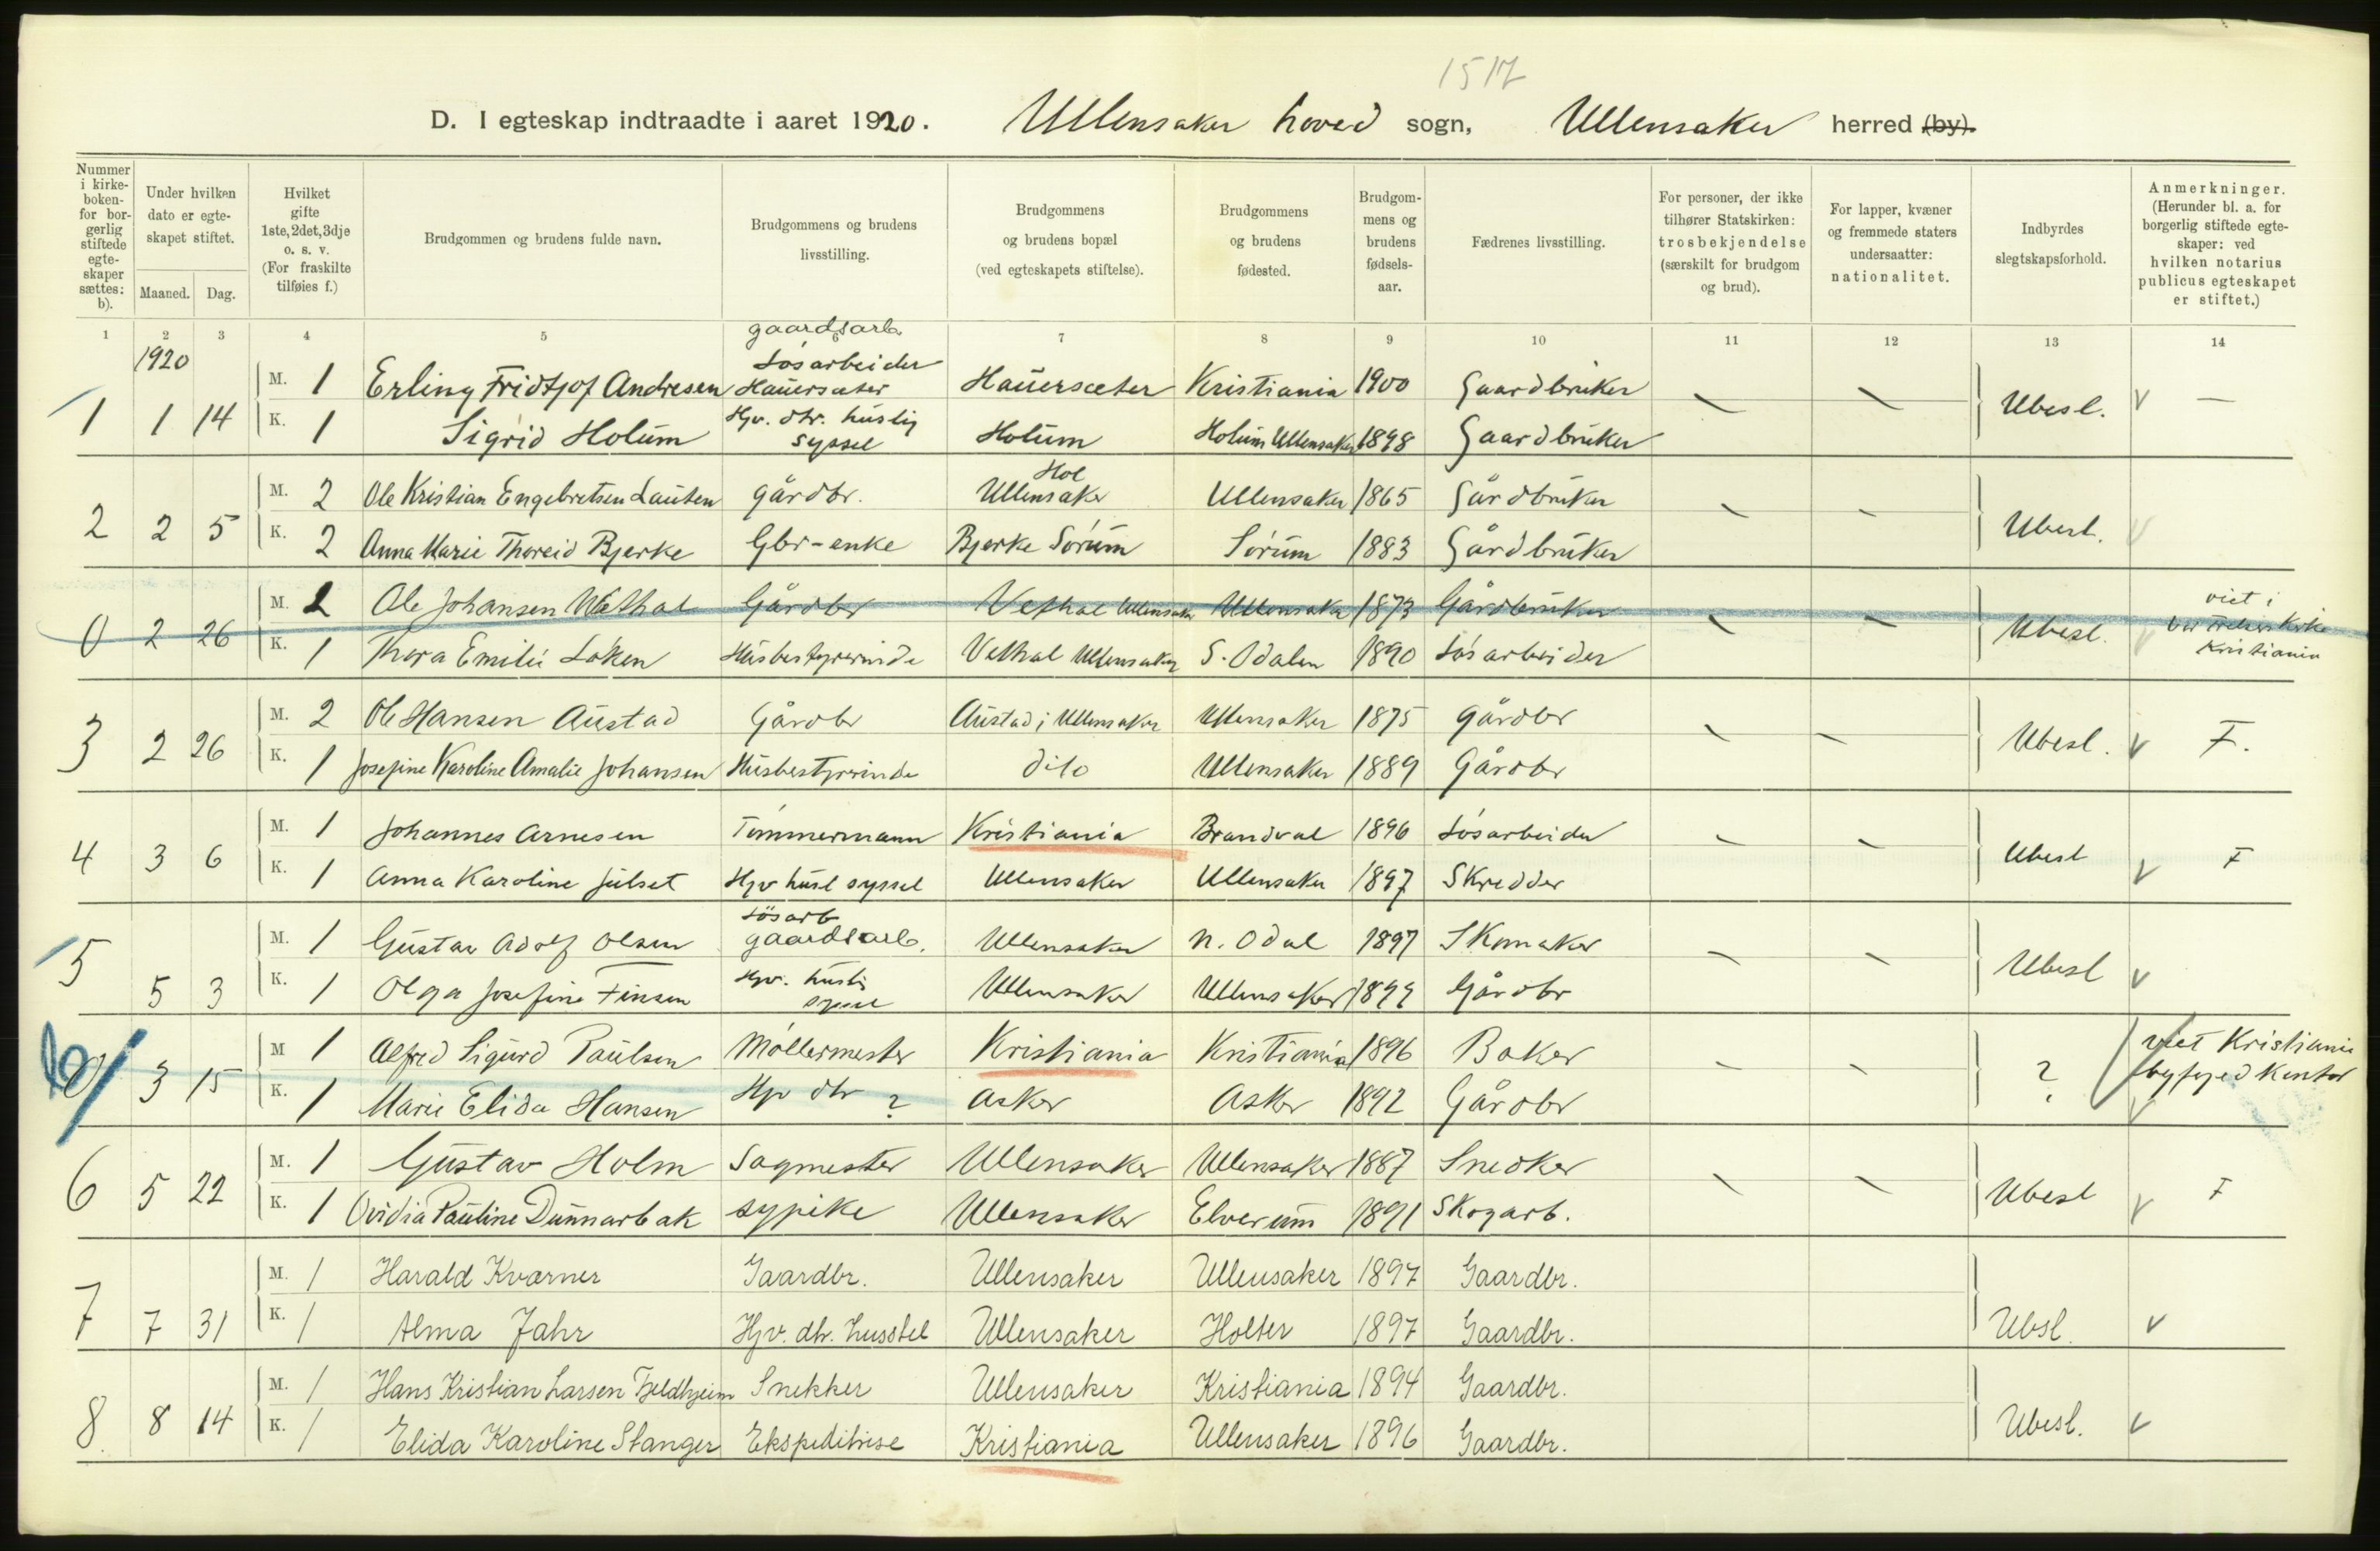 1517
D. I egteskap indtraadte i aaret 1920. Ullensaker hoved sogn, Ullensaker herred (by).
Nummer i kirke-boken- for bor-gerlig stiftede egte-skaper sættes: b).
Under hvilken dato er egte-skapet stiftet.
Maaned. Dag.
Hvilket gifte 1ste, 2det, 3dje o. s. v. (For fraskilte tilføies f.)
Brudgommen og brudens fulde navn.
Brudgommens og brudens livsstilling.
Brudgommens og brudens bopæl (ved egteskapets stiftelse).
Brudgommens og brudens fødested.
Brudgom-mens og brudens fødsels-aar.
Fædrenes livsstilling.
For personer, der ikke tilhører Statskirken: trosbekjendelse (særskilt for brudgom og brud).
For lapper, kvæner og fremmede staters undersaatter: nationalitet.
Indbyrdes slegtskapsforhold.
Anmerkninger. (Herunder bl. a. for borgerlig stiftede egte-skaper: ved hvilken notarius publicus egteskapet er stiftet.)
1 2 3 4 5 6 7 8 9 10 11 12 13 14
1920
gaardsarb
Løsarbeider
M. 1 Erling Fridtjof Andresen Hauersæter Hauersæter Kristiania 1900 Gaardbruker
1 1 14 Ubesl. —
K. 1 Sigrid Holum Hjv. dtr. huslig syssel Holum Holum Ullensaker 1898 Gaardbruker
Hol
M. 2 Ole Kristian Engebretsen Lauten gårdbr. Ullensaker Ullensaker 1865 Gårdbruker
2 2 5 Ubesl.
K. 2 Anna Marie Thoreid Bjerke Gbr-enke Bjerke Sørum Sørum 1883 Gårdbruker
M. 2 Ole Johansen Wethal Gårdbr Vethal Ullensaker Ullensaker 1873 Gårdbruker
0 2 26 Ubesl. viet i Vor Frelsers Kirke Kristiania
K. 1 Thora Emilie Løken Husbestyrerinde Vethal Ullensaker S. Odalen 1890 Løsarbeider
M. 2 Ole Hansen Austad Gårdbr Austad i Ullensaker Ullensaker 1875 gårdbr
3 2 26 Ubesl. F.
K. 1 Josefine Karoline Amalie Johansen Husbestyrerinde dito Ullensaker 1889 Gårdbr
M. 1 Johannes Arnesen Tømmermann Kristiania Brandval 1896 Løsarbeider
4 3 6 Ubesl F
K. 1 Anna Karoline Julset Hjv husl syssel Ullensaker Ullensaker 1897 Skredder
Løsarb
M. 1 Gustav Adolf Olsen gaardsarb. Ullensaker N. Odal 1897 Skomaker
5 5 3 Ubesl
K. 1 Olga Josefine Finsen Hjv. husli syssel Ullensaker Ullensaker 1899 Gårdbr
M 1 Alfred Sigurd Paulsen Møllermester Kristiania Kristiania 1896 Baker
3 15 ? viet Kristiania byfoged kontor
K. 1 Marie Elida Hansen Hjv dtr ? Asker Asker 1892 Gårdbr
M. 1 Gustav Holm Sagmester Ullensaker Ullensaker 1887 Snedker
6 5 22 Ubesl F
K. 1 Ovidia Pauline Dunnarbak sypike Ullensaker Elverum 1891 Skogarb.
M. 1 Harald Kværner Gaardbr. Ullensaker Ullensaker 1897 Gaardbr.
7 7 31 Ubsl.
K. 1 Alma Jahr Hjv. dtr. husstel Ullensaker Holter 1897 Gaardbr.
M. 1 Hans Kristian Larsen Fjeldhjeim Snekker Ullensaker Kristiania 1894 Gaardbr.
8. 8 14 Ubesl.
K. 1 Elida Karoline Stanger Ekspeditrise Kristiania Ullensaker 1896 Gaardbr.